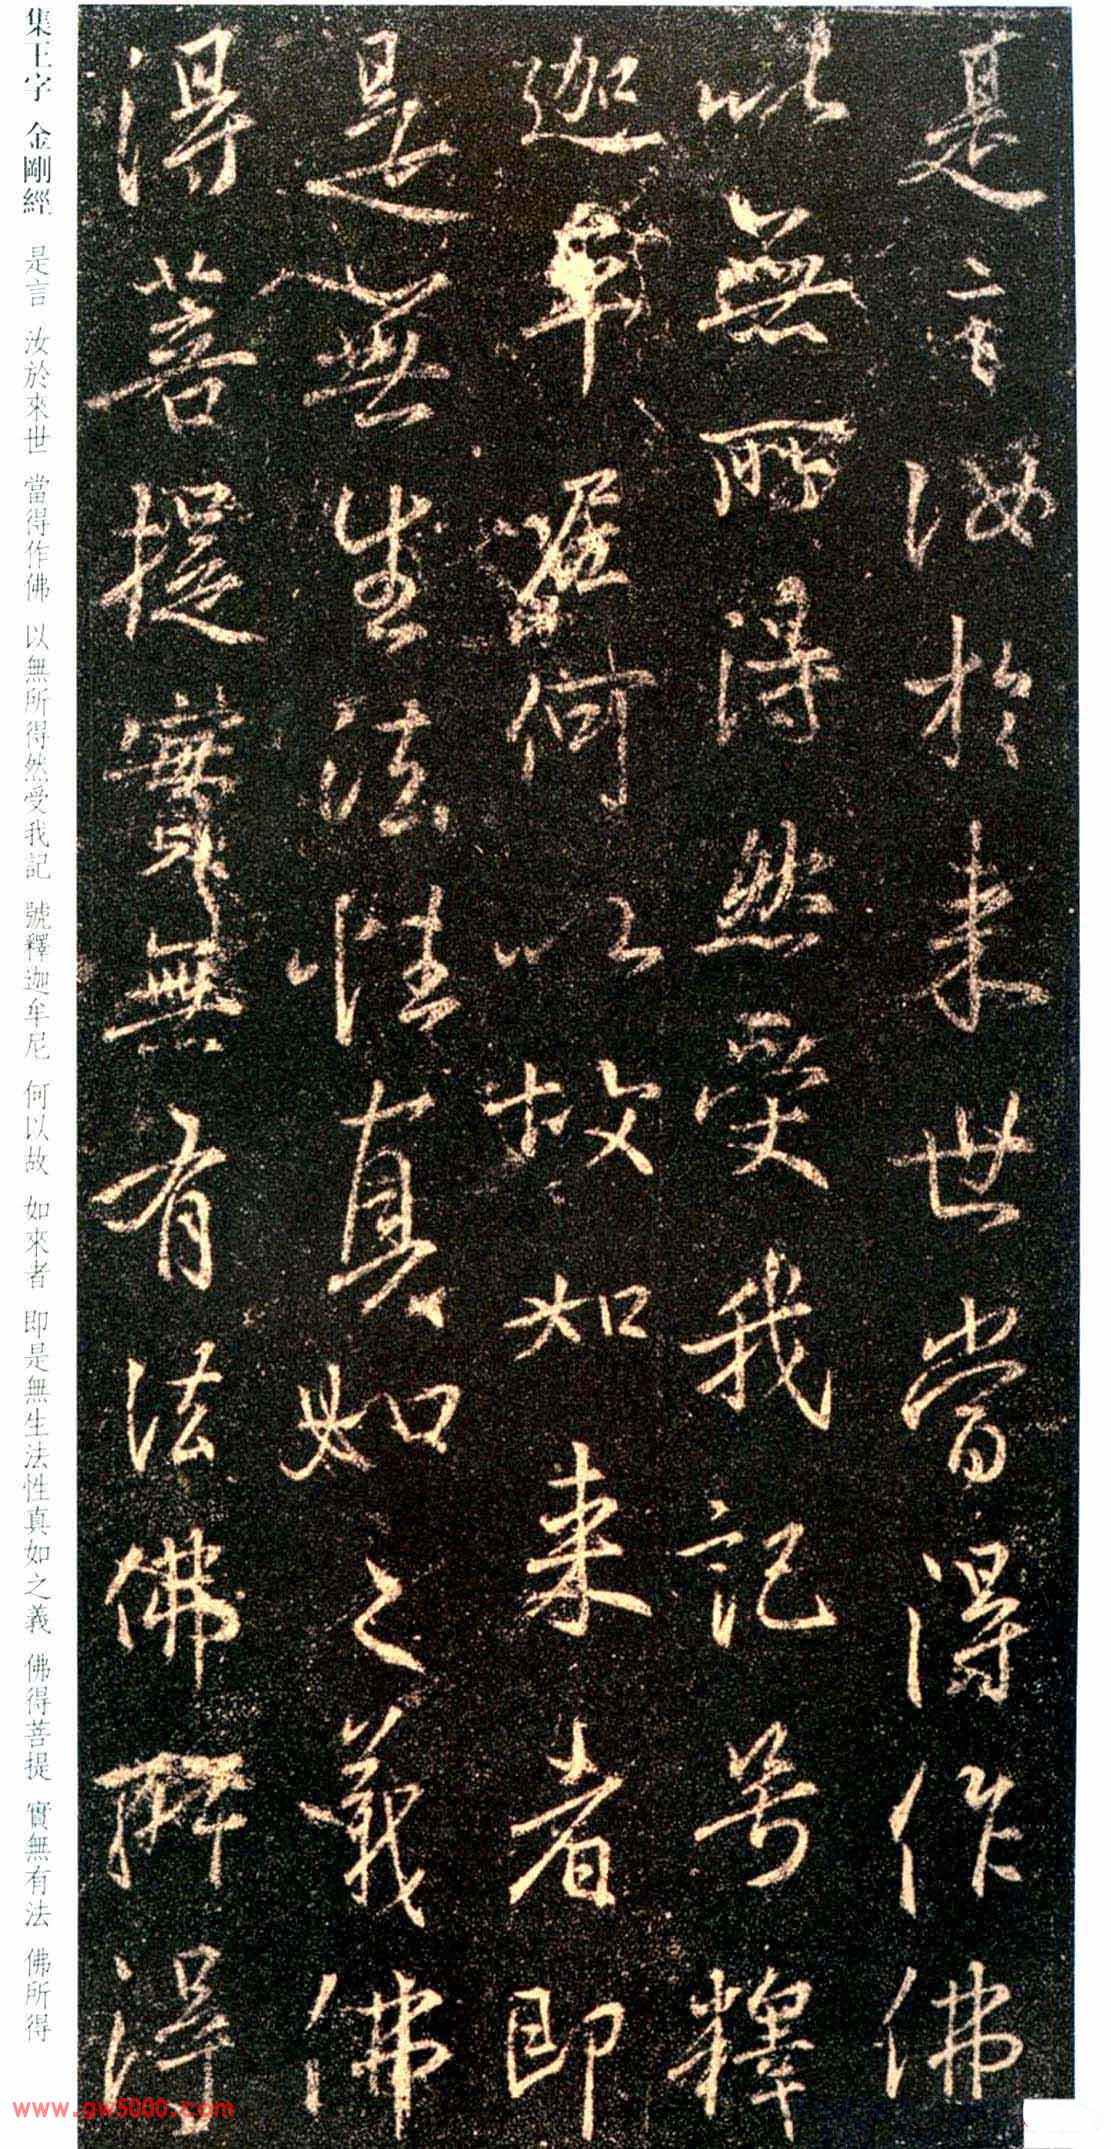 是言汝於来世當得作佛
以無所得然受我記号釋
迦牟尼何以故如来者即
是無生法性真如之義佛
得菩提實無有法佛所得
集王字 金剛經 是言 汝於來世 當得作佛 以無所得然受我記 號釋迦牟尼 何以故 如來者 即是無生法性真如之義 佛得菩提 實無有法 佛所得
www.gw5000.com